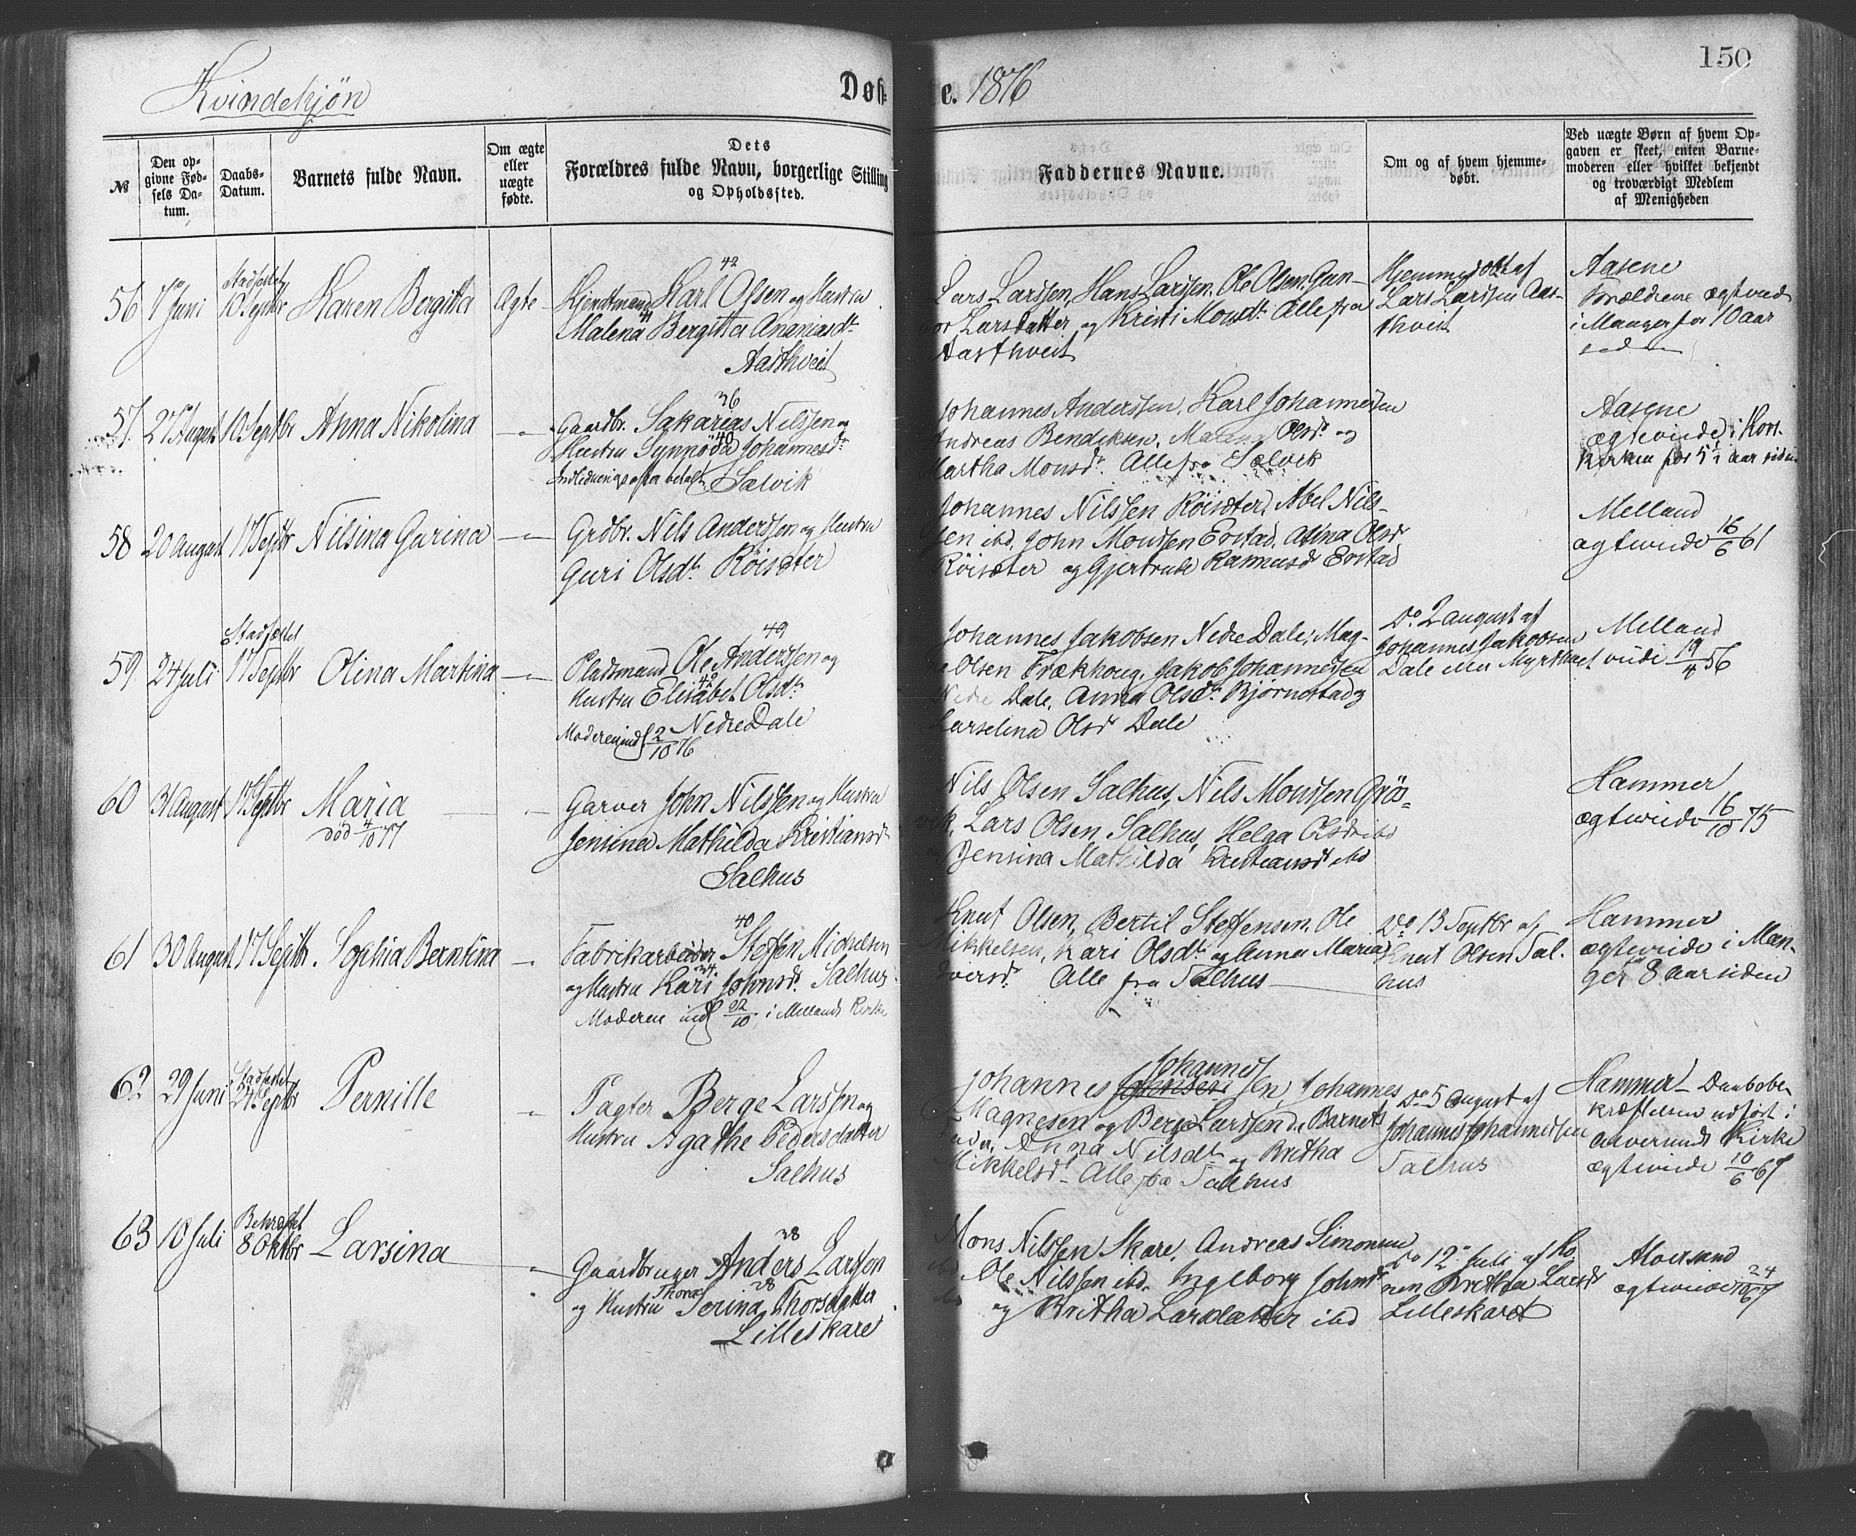 150
Kvindekjön
Døb-
te. 1876
№
Den op-
givne Fød-
sels Da-
tum.
Daabs-
Datum.
Barnets fulde Navn.
Om ægte
eller
uægte
fødte.
Dets
Forældres fulde Navn, borgerlige Stilling
og Opholdssted.
Faddernes Navne.
Om og af hvem hjemme-
døbt.
Ved uægte Børn af hvem Op-
gaven er skeet, enten Barne-
moderen eller hvilket bekjendt
og troværdigt Medlem
af Menigheden
56
Juni
Stadfæstet
10 Septbr
Karen Bergitta
Ægte
42
Karl Olsen og Hustru
41
Malena Bergitta Ananiasdt
Aasthveit
Lars Larssen, Hans Larssen, Ole Olsen, Gun-
vor Larsdatter og Kristi Monsdt. Alle fra
Aasthveit
Hjemmedöbt af
Lars Larssen Aas-
thveit
Aasene
Forældrene ægteviede
i Manger for 10 aar
siden
57
27 August
10 Septbr
Anna Nikolina
36
Gaardbr. Sakarias Nilssen og
40
Hustru Synnöda Johannesdt
Salvik
Johannes Anderssen, Karl Johannessen
Andreas Bendiksen, Olsdt og
Martha Monsdt. Alle fra Salvik
Aasene
ægteviede i Kors-
kirken for 5½ aar siden
58
20 August
17 Septbr
Nilsina Gurina
Grdbr. Nils Anderssen og Hustru
Guri Olsdt. Röisæter
Johannes Nilssen Röisæter, Abel Nils-
sen ibd. John Monssen Erstad, Anna Olsdt
Röisæter og Gjertrude Rasmusdt Erstad
Melland
ægteviede 16/6 61
59
24 Juli
Stadfæstet
17 Septbr
Olina Martina
49
Pladsmand Ole Anderssen og
42
Hustru Elisabet Olsdt
Nedre Dale
Moderen ind 2/10 76
Johannes Jakobsen Nedre Dale, Mag-
ne Olsen Frækhoug, Jakob Johannessen
Nedre Dale, Anna Olsdt. Bjørnestad og
Larselina Olsdt Dale
Do 2 august af
Johannes Jakobsen
Dale
Melland
viede 19/ 56
60
31 August
17 Septbr
Maria
död 4/10 77
Garver John Nilssen og Hustru
Jensina Mathilda Kristiansdt
Salhus
Nils Olsen Salhus, Nils Monssen Grös-
vik, Lars Olsen Salhus, Helga Olsdt ibd
og Jensina Mathilda Kristiansdt ibd
Hammer
ægteviede 16/10 75
61
30 August
17 Septbr.
Sophia Berntina
40
Fabrikarbeider Steffen Mickelsen
34
og Hustru Kari Johnsdt. Salhus
Moderen ind 22/10 i Mellands Kirke
Knut Olsen, Bertil Steffensen, Ole
Mikkelsen, Kari Olsdt og Anna Maria
Iversdt. Alle fra Salhus
Do 13 Septbr af
Knut Olsen Sal-
hus
Hammer
ægteviede i Man-
ger 8 aar siden
62
29 Juni
Stadfæstet
24 Septbr
Pernille
Pagter Berge Larssen og
Hustru Agathe Pedersdatter
Salhus
Johannis
Johannes sen, Johannes
Magnesen og Berge Larssen, Barnets
Fader, Anna Nilsdt og Britha
Mikkelsdt. Alle fra Salhus
Do 5 august af
Johannes Johannessen
Salhus
Hammer - Daabsbe-
kræftelsen udført i
Kirke
ægteviede 10/6 67
63
10 Juli
Bekræftet
8 Oktbr
Larsina
28
Gaardbruger Anders Larssen
28
og Hustru Serina Thorsdatter
Lilleskare
Mons Nilssen Skare, Andreas Simonsen
ibd. Ole Nilssen ibd. Ingeborg Johnsdt
ibd og Britha Larsdatter ibd
Do 12 Juli af Ko-
nen Brettha Larsdt
Lilleskaret
Alversund
ægteviede 24/10 67